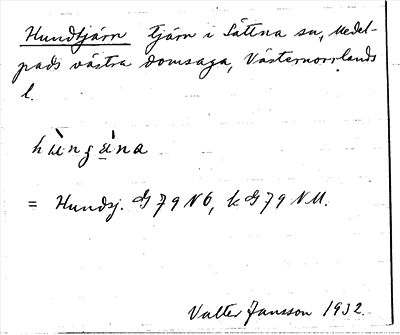 Hundtjärn tjärn i Sättna sn, Medel-
pads västra domsaga, Västernorrlands
l.
hùngána
= Hundsj. G79NÖ, k G79NU.
Valter Jansson 1932.